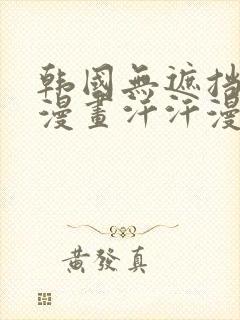 韩國無遮挡
漫畫汗汗漫
黃發真